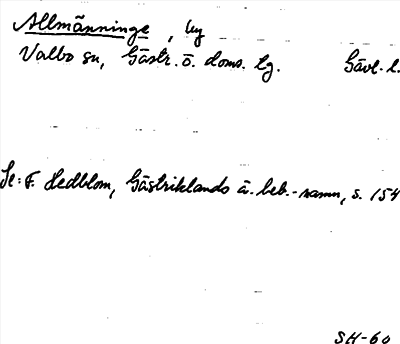 Allmänninge, by
Valbo sn, Gästr. ö. doms. lg. Gävl. l.
Se: F. Hedblom, Gästriklands ä. beb.-namn, s. 154
SH-60